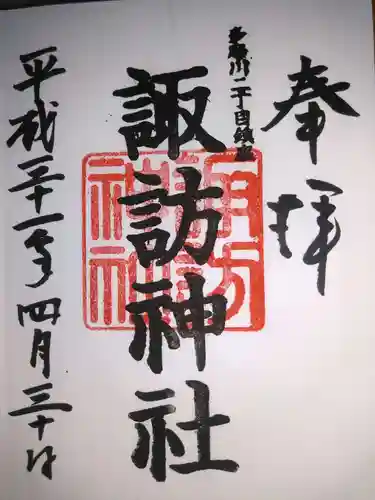 奉拝
多摩川二丁目鎮座
諏訪神社
平成三十一年四月三十日